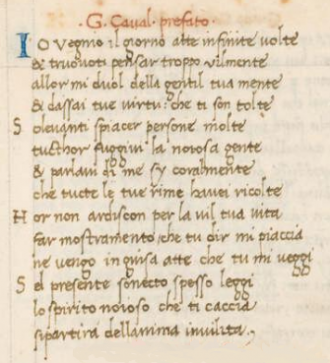 · G. Caual. prefato ·
I O uegnio il giorno atte infinite uolte
& truouoti pensar troppo uilmente
allor mi duol della gentil tua mente
& dassai tue uirtu: che ti son tolte
S oleuanti spiacer persone molte
tucthor fuggiui la noiosa gente
& parlaui di me sy coralmente
che tucte le tue rime hauei ricolte
H or non ardiscon per la uil tua uita
far mostramento che tu dir mi piaccia
ne uengo inguisa atte che tu mi ueggi
S el presente sonecto spesso leggi
lo spirito noioso che ti caccia
sipartira dellanima inuilita.